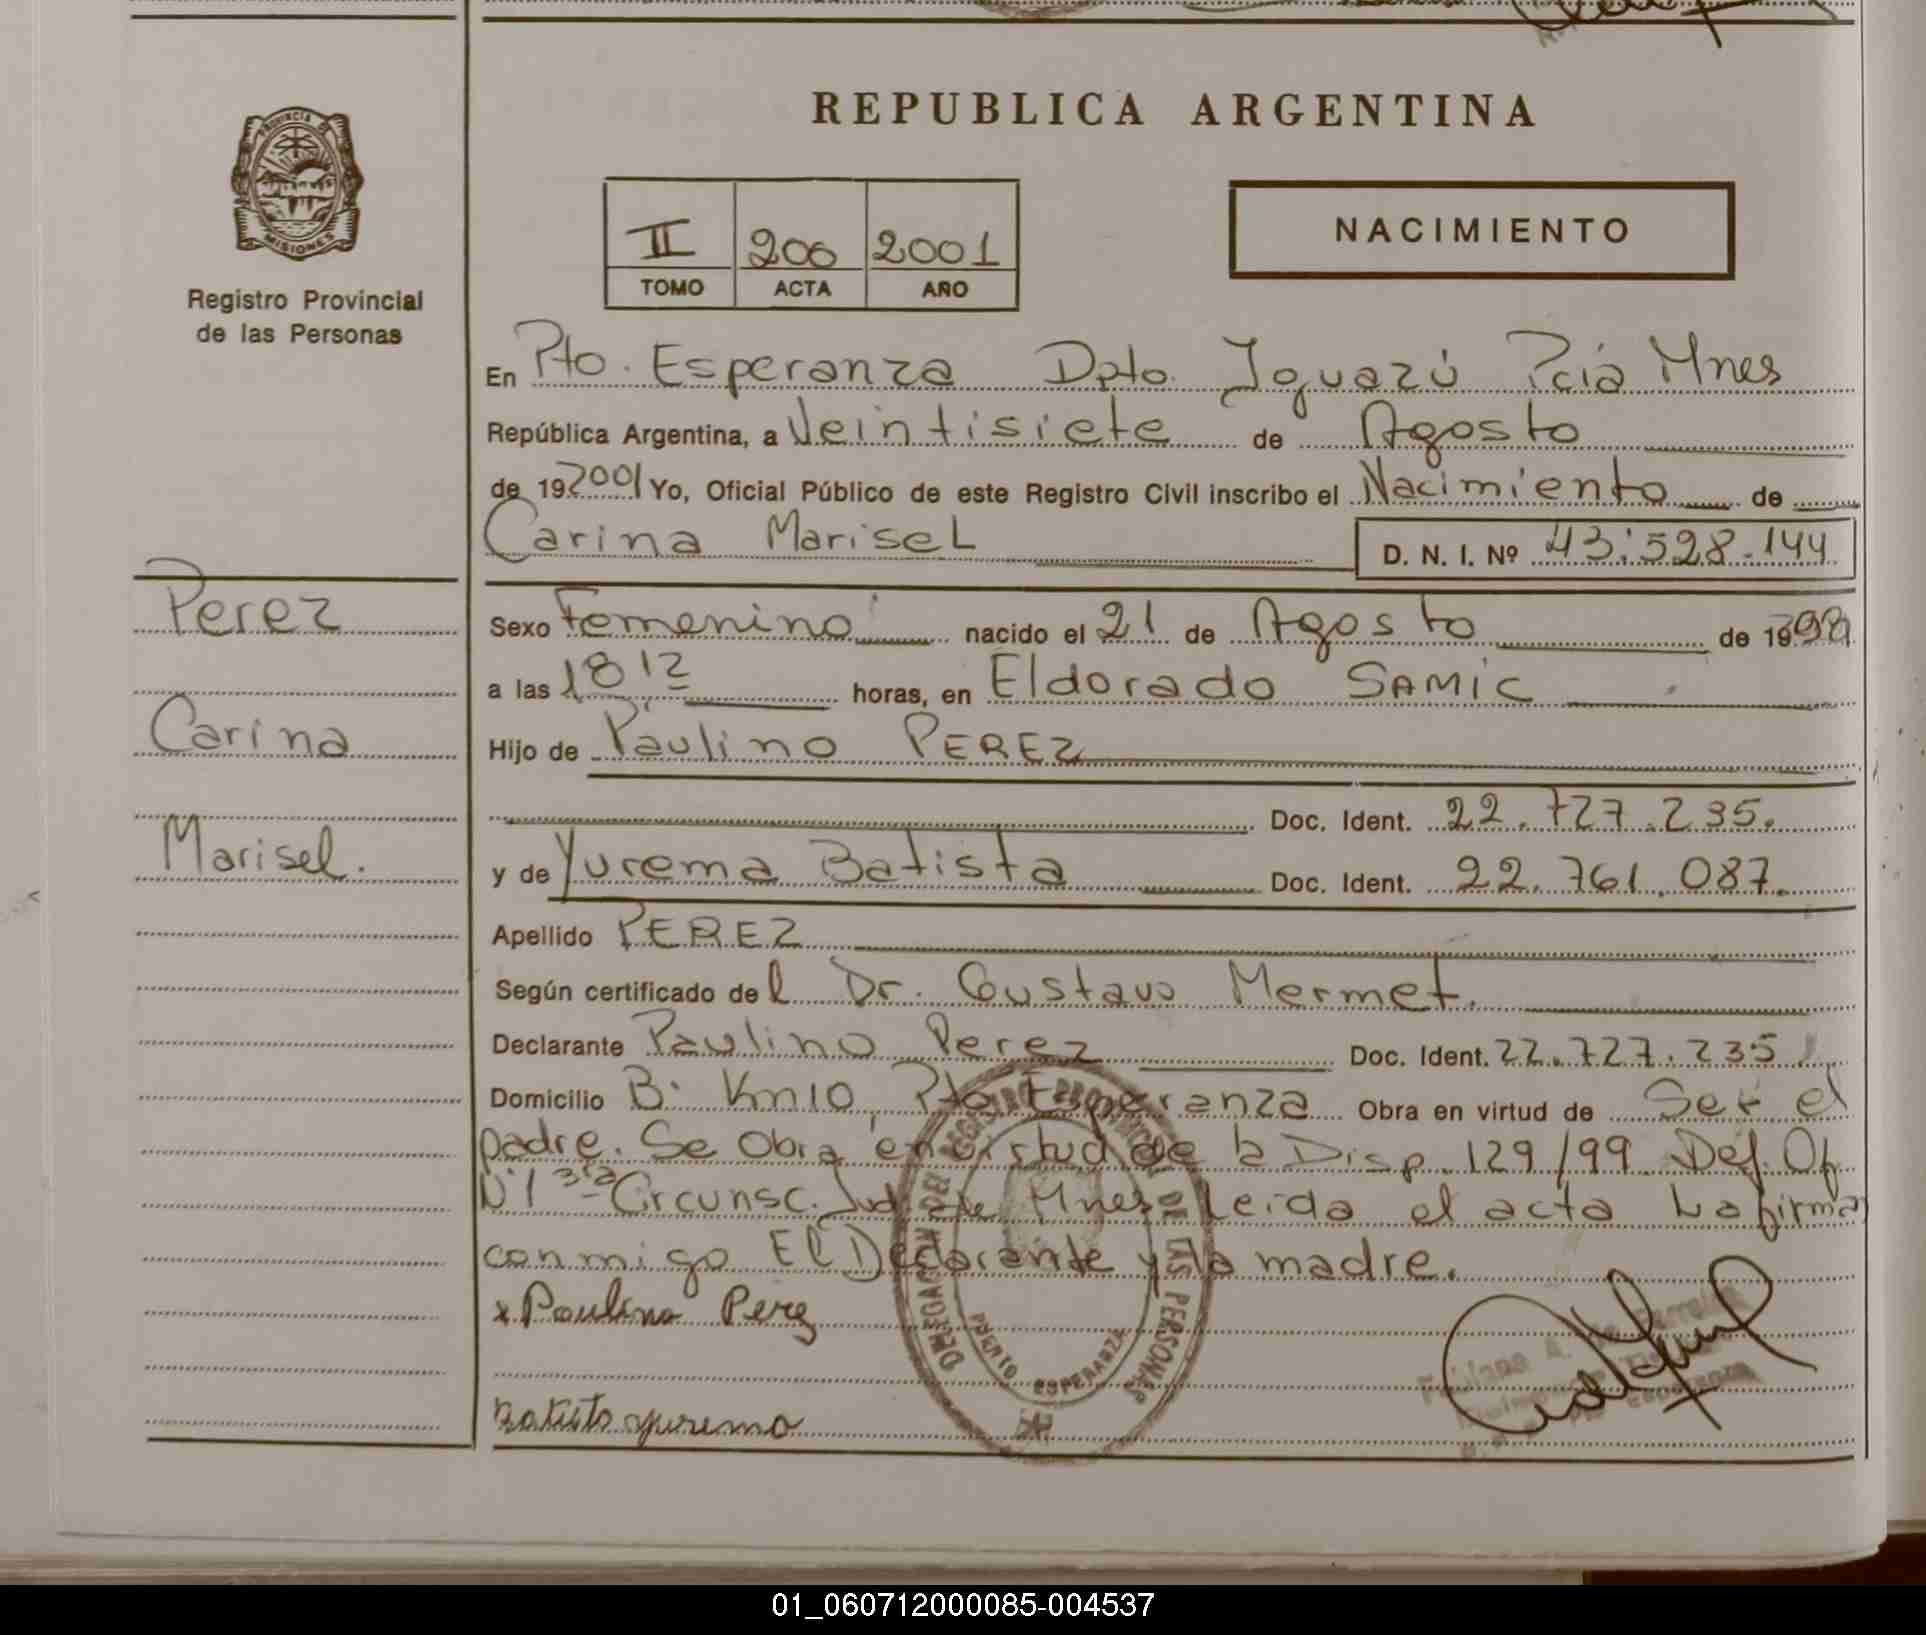 REPUBLICA ARGENTINA
PROVINCIA DE
MISIONES
Registro Provincial
de las Personas
II 200 2001
TOMO ACTA AÑO
NACIMIENTO
En Pto. Esperanza Dpto. Iguazú Pcia Mnes
República Argentina, a Veintisiete de Agosto
de 19 2001 Yo, Oficial Público de este Registro Civil inscribo el Nacimiento de
Carina Marisel D. N. I. Nº 43.528.144
Perez
Carina
Marisel.
Sexo Femenino nacido el 21 de Agosto de 19
a las 18 12 horas, en Eldorado SAMIC
Hijo de Paulino PEREZ
Doc. Ident. 22.727.235.
y de Yurema Batista Doc. Ident. 22.761.087.
Apellido PEREZ
Según certificado del Dr. Gustavo Mermet.
Declarante Paulino Perez Doc. Ident. 22.727.235
Domicilio B: Km10 Pto. Esperanza Obra en virtud de Ser el
padre. Se Obra en virtud de la Disp. 129/99 Def. Of
N°1 3ra Circunsc. Jud. de Mnes. Leida el acta La firma
conmigo El Declarante y la madre.
x Paulino Perez
Batista yurema
DELEGACION DEL REGISTRO PROVINCIAL DE LAS PERSONAS
PUERTO ESPERANZA
01_060712000085-004537